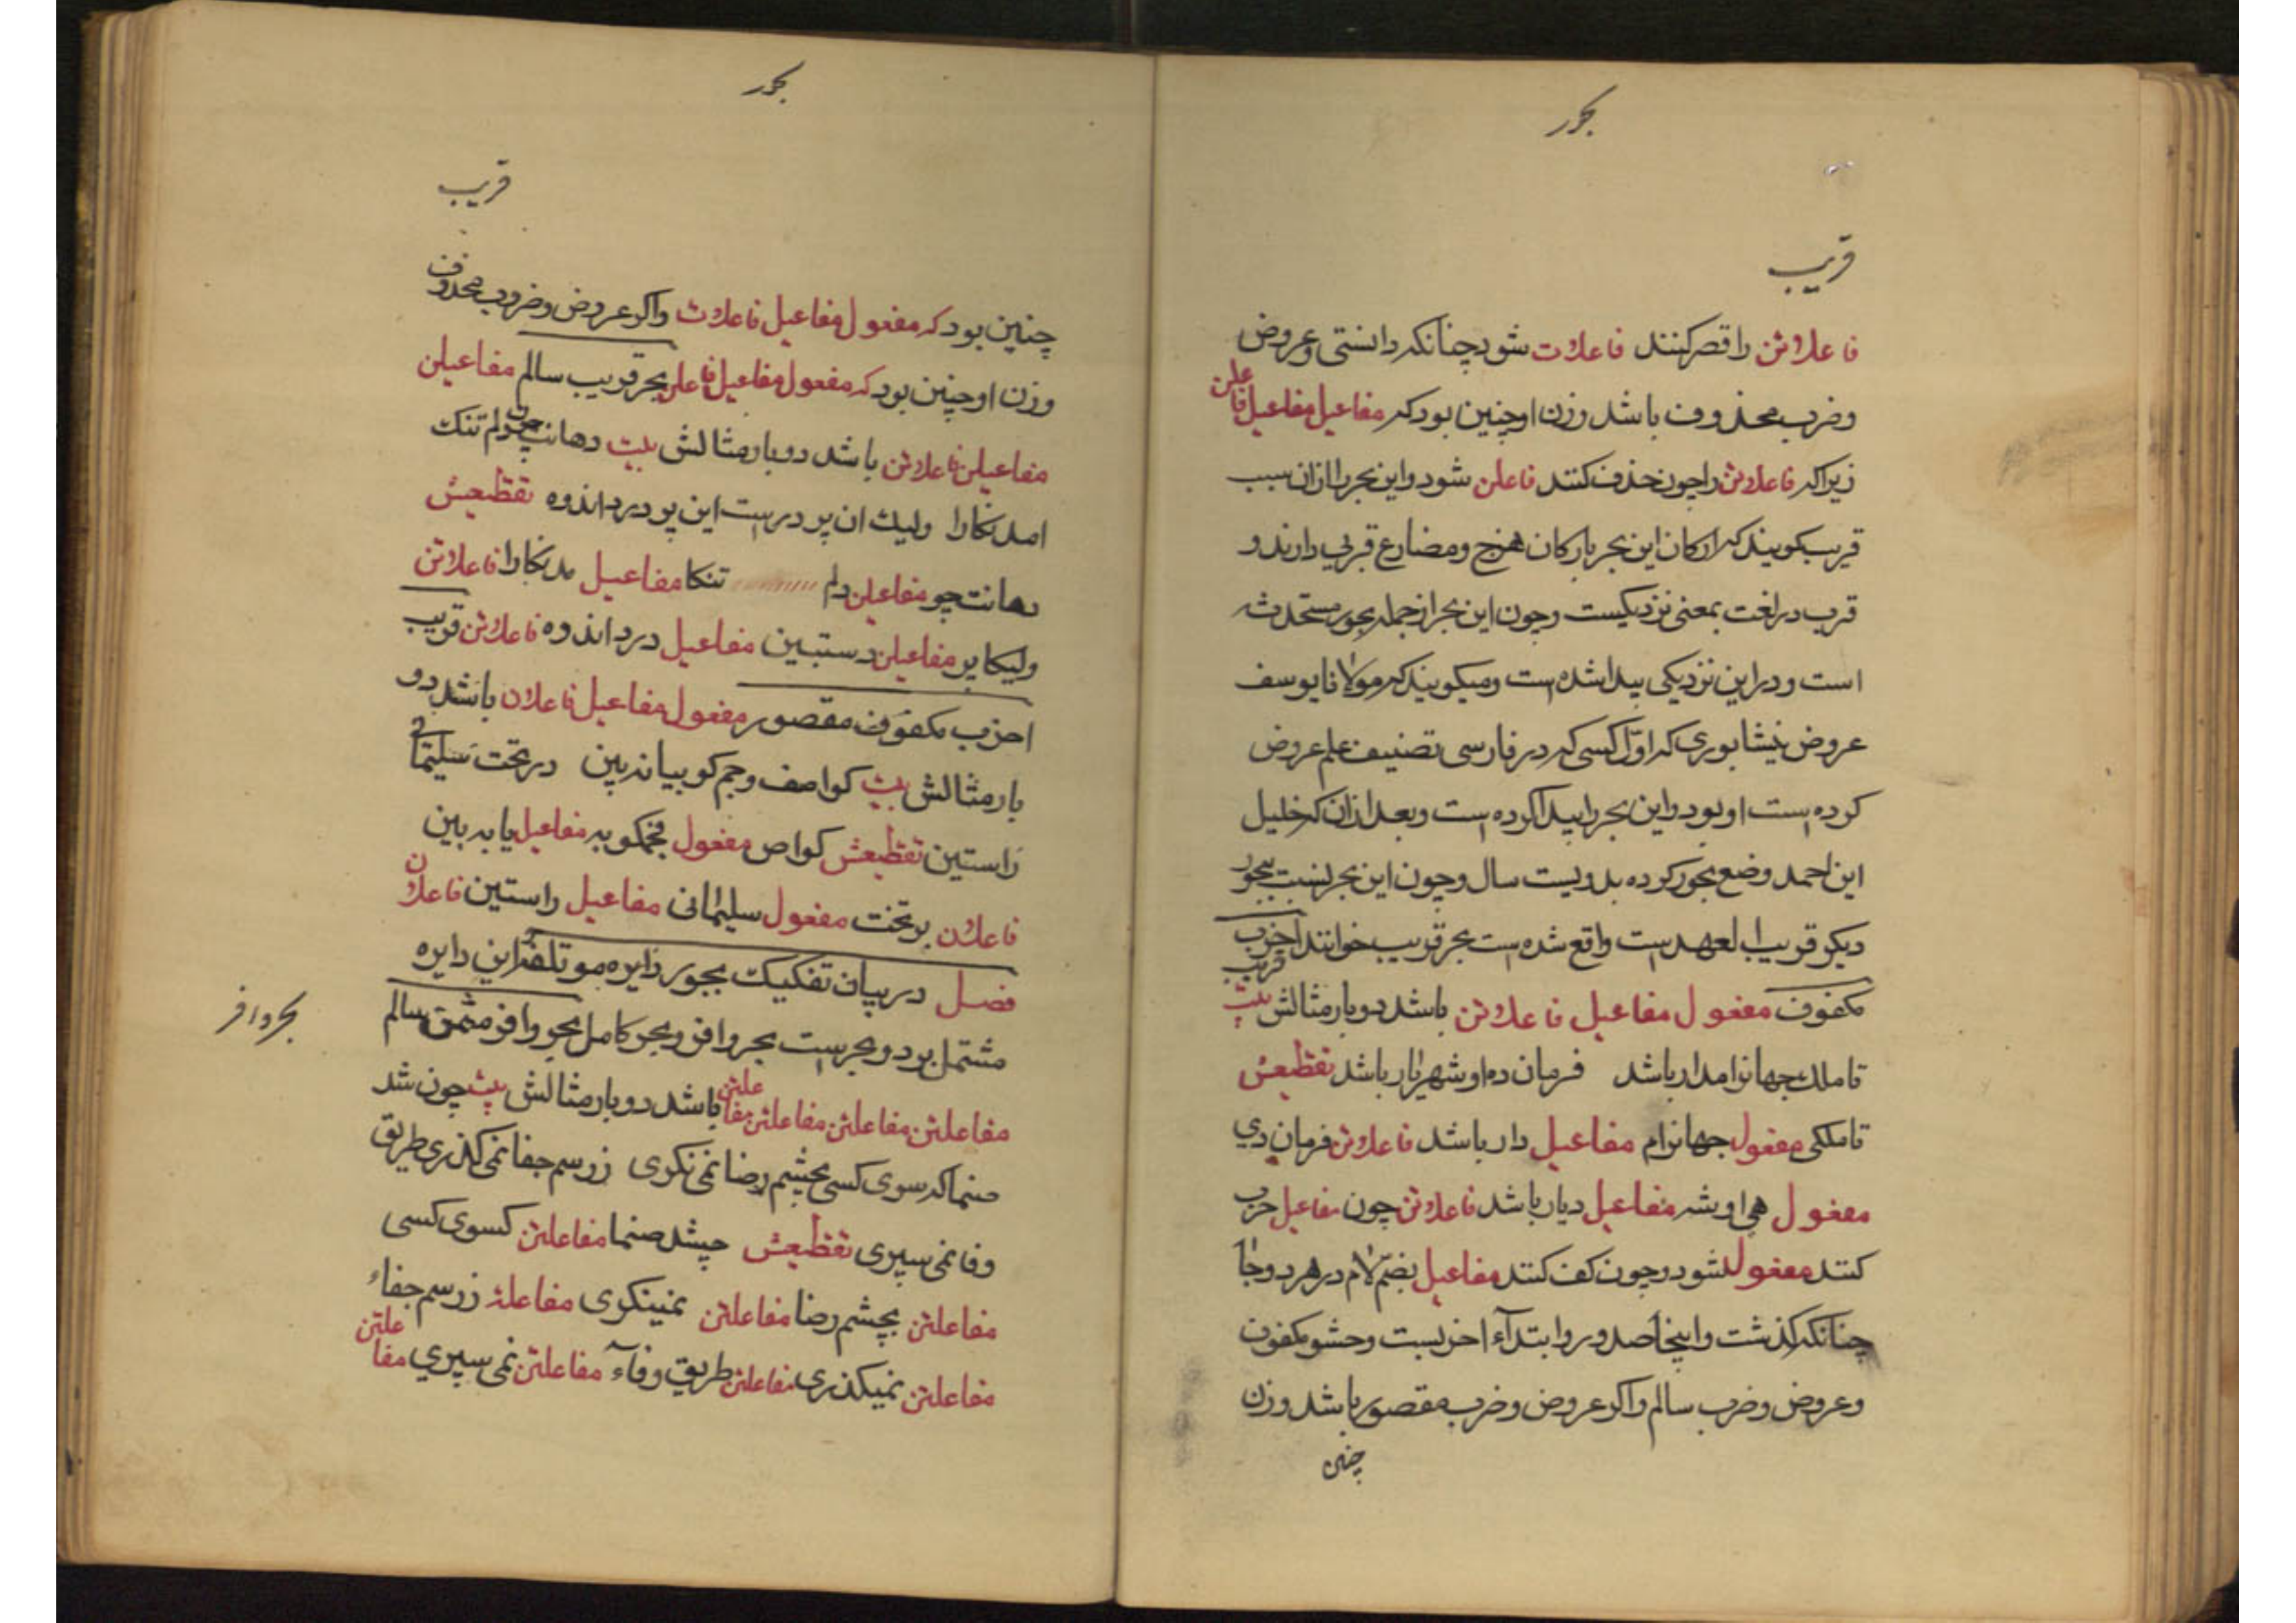 بحور
قریب
فاعلاتن را قصر کنند فاعلات شود چنانکه دانستی و عروض
و ضرب محذوف باشد وزن او چنین بود که مفاعیل مفاعیل فاعلن
زیرا که فاعلاتن را چون حذف کنند فاعلن شود و این بحر را از ان سبب
قریب کویند که ارکان این بحر بارکان هزج و مضارع قربی دارند و
قرب در لغت بمعنی نزدیکیست و چون این بحر از جمله بحور مستحدثه
است و در این نزدیکی پیدا شده است و میکویند که مولانا یوسف
عروض نیشابوری که اوّل کسی که در فارسی تصنیف علم عروض
کرده است او بود و این بحر را پیدا کرده است و بعد از ان که خلیل
ابن احمد وضع بحور کرده بدویست سال و چون این بحر نسبت ببحور
دیکر قریب العهد است واقع شده است بحر قریب خوانند اخرب
مکفوف قریب مفعول مفاعیل فاعلاتن باشد دو بار مثالش بیت
تا ملک جهانرا مدار باشد فرمان ده او شهریار باشد تقطیعش
تا ملکی مفعول جهانرام مفاعیل دار باشد فاعلاتن فرمان دی
مفعول هی او شه مفاعیل ریار باشد فاعلاتن چون مفاعیل خرب
کنند مفعول شود و چون کف کنند مفاعیل بضمّ لام در هر دو جا
چنانکه کذشت و اینجا صدور و ابتدآء اخربست و حشو مکفوف
و عروض و ضرب سالم و اکر عروض و ضرب مقصور باشد وزن
چنین
بحور
قریب
چنین بود که مفعول مفاعیل فاعلات و اکر عروض و ضرب محذوف
وزن او چنین بود که مفعول مفاعیل فاعلن بحر قریب سالم مفاعیلن
مفاعیلن فاعلاتن باشد دو بار مثالش بیت دهانت چون دلم تنک
امد نکارا ولیک ان پر درست این پر درد اندوه تقطیعش
دهانت چو مفاعیلن دلم تنکا مفاعیل مد نکارا فاعلاتن
ولیکا پر مفاعیلن درستبین مفاعیل درد اندوه فاعلاتن قریب
اخرب مکفوف مقصور مفعول مفاعیل فاعلان باشد دو
بار مثالش بیت کو اصف و جم کو بیا نه بین در تخت سلیمان
راستین تقطیعش کو اص مفعول فجمکو به مفاعیل یا به بین
فاعلان بر تخت مفعول سلیمانی مفاعیل راستین فاعلان
فصل در بیان تفکیک بحور دایره موتلفه این دایره
مشتمل بر دو بحر است بحر وافر و بحر کامل بحر وافر مثمن سالم
بحر وافر
مفاعلتن مفاعلتن مفاعلتن مفاعلتن باشد دو بار مثالش بیت چون شد
صنما که سوی کسی بچشم رضا نمی نکری ز رسم جفا نمی کذری طریق
وفا نمی سپری تقطیعش چشد صنما مفاعلتن کسوی کسی
مفاعلتن بچشم رضا مفاعلتن نمینکری مفاعلتن ز رسم جفاء
مفاعلتن نمیکذری مفاعلتن طریق وفآء مفاعلتن نمی سپری مفاعلتن